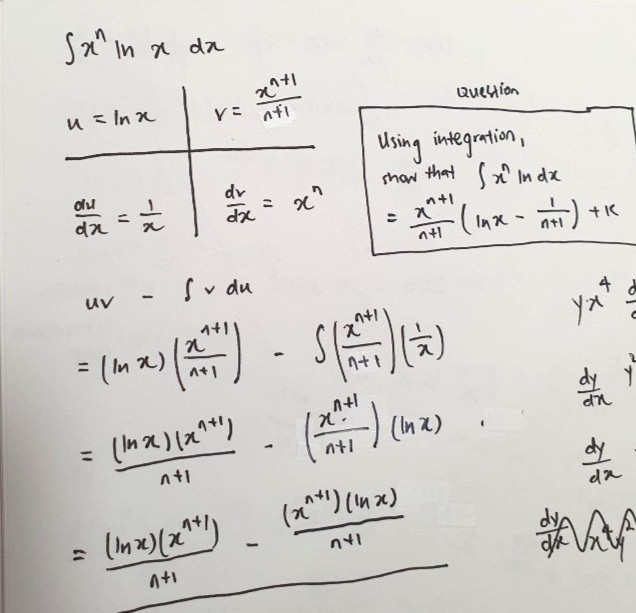 ∫ xⁿ ln x dx
u = ln x
v = xⁿ⁺¹/n+1
du/dx = 1/x
dv/dx = xⁿ
Question
Using integration,
show that ∫ xⁿ ln dx
= xⁿ⁺¹/n+1 (ln x - 1/n+1) + K
uv - ∫ v du
= (ln x) (xⁿ⁺¹/n+1) - ∫ (xⁿ⁺¹/n+1) (1/x)
= (ln x)(xⁿ⁺¹)/n+1 - (xⁿ⁺¹/n+1) (ln x)
= (ln x)(xⁿ⁺¹)/n+1 - (xⁿ⁺¹)(ln x)/n+1
yx⁴
dy/dx y²
dy/dx